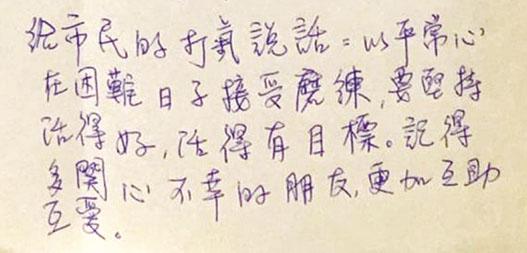 給市民的打氣說話：以平常心
在困難日子接受磨練，要堅持
活得好，活得有目標。記得
多關心不幸的朋友，更加互助
互愛。